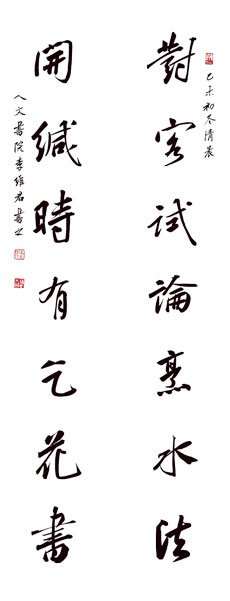 乙未初冬清晨
對客試論烹水法
開緘時有乞花書
人文書院李維君書之